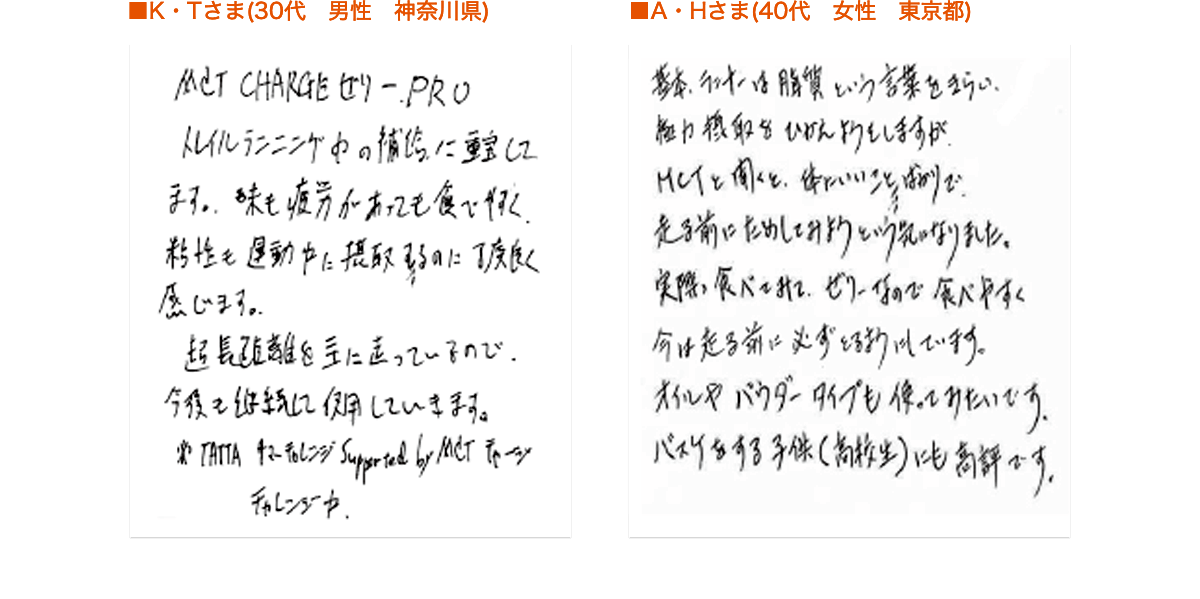 ■K・Tさま(30代　男性　神奈川県)
MCT CHARGEゼリー.PRO
トレイルランニング中の補給に重宝して
ます。味も疲労があっても食べやすく、
粘性も運動中に摂取するのに丁度良く
感じます。
超長距離を主に走っているので、
今後も継続して使用していきます。
※TATTA サマーチャレンジ Supported by MCT チャージ
チャレンジ中.
■A・Hさま(40代　女性　東京都)
基本、ランナーは脂質という言葉をきらい、
極力摂取をひかえようとしますが、
MCTと聞くと、体にいいことばかりで、
走る前にためしてみようという気になりました。
実際、食べてみて、ゼリーなので食べやすく
今は走る前に必ずとるようにしています。
オイルやパウダータイプも使ってみたいです。
バスケをする子供(高校生)にも高評です。